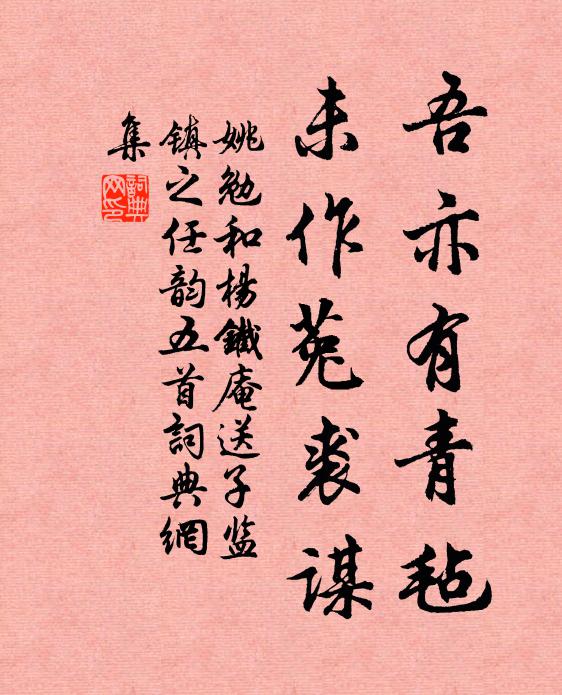 吾亦有青毡
未作菟裘谋
姚勉和楊鐵庵送子监
镇之任韵五首詞典網
集
詞典
网印